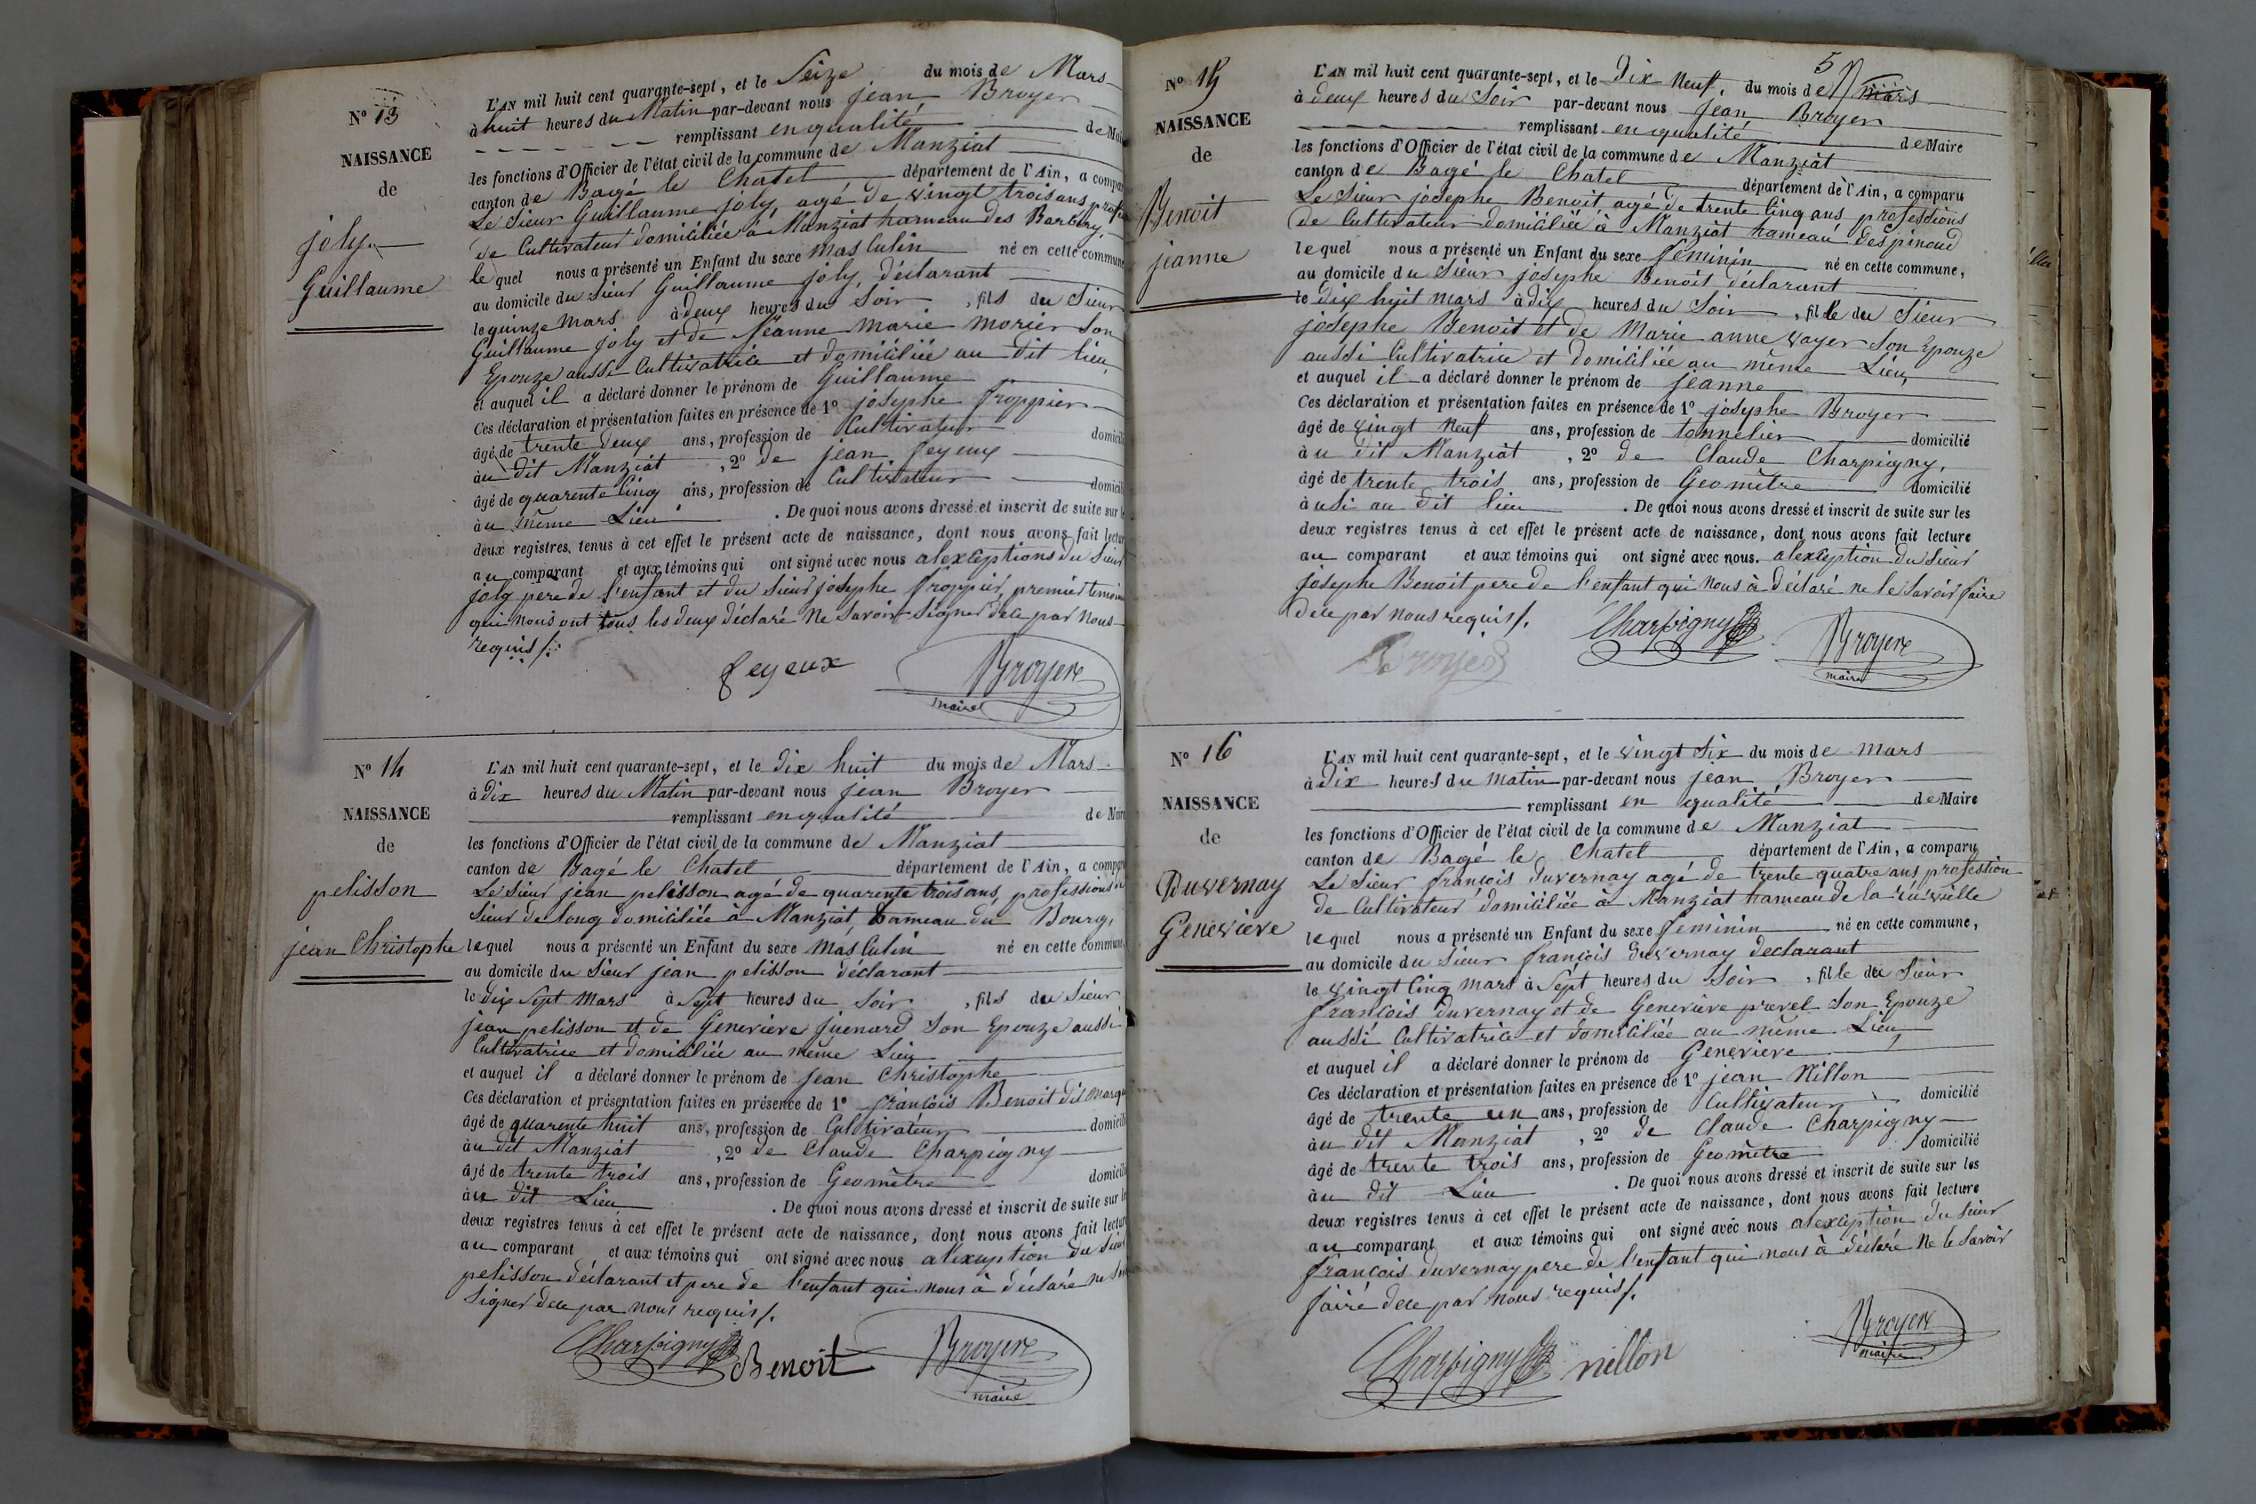 N° 13
NAISSANCE
de
joly
Guillaume
L'AN mil huit cent quarante-sept, et le Seize du mois de Mars
à huit heures du Matin par-devant nous jean Broyer
remplissant en qualité de Mai
les fonctions d'Officier de l'état civil de la commune de Manziat
canton de Bagé le Chatel département de l'Ain, a compa
Le Sieur Guillaume joly, agé de vingt trois ans profes
de Cultivateur domiciliée à Manziat hameau des Barbery,
lequel nous a présenté un Enfant du sexe masculin né en cette commune
au domicile du Sieur Guillaume joly, déclarant
le quinze mars à deux heures du Soir, fils du Sieur
Guillaume joly et de Jeanne marie morier Son
Epouze aussi Cultivatrice et domiciliée au dit lieu,
et auquel il a déclaré donner le prénom de Guillaume
Ces déclaration et présentation faites en présence de 1° josephe froppier
âgé de trente deux ans, profession de Cultivateur domicili
àu dit Manziat, 2° de jean feyeux
âgé de quarente Cinq ans, profession de Cultivateur domicili
àu même Lieu. De quoi nous avons dressé et inscrit de suite sur le
deux registres tenus à cet effet le présent acte de naissance, dont nous avons fait lectur
au comparant et aux témoins qui ont signé avec nous alexceptions du Sieur
joly pere de l'enfant et du Sieur josephe froppier, premier temoin
qui nous ont tous les deux déclaré ne Savoir Signer dece par nous
requis/.
feyeux Broyer
maire
N° 14
NAISSANCE
de
pelisson
jean Christophe
L'AN mil huit cent quarante-sept, et le dix huit du mois de Mars
à dix heures du Matin par-devant nous jean Broyer
remplissant en qualité de Maire
les fonctions d'Officier de l'état civil de la commune de Manziat
canton de Bagé le Chatel département de l'Ain, a compar
Le Sieur jean pelisson agé de quarente trois ans, professions
Sieur de long domiciliée à Manziat, hameau du Bourg,
lequel nous a présenté un Enfant du sexe masculin né en cette commune
au domicile du Sieur jean pelisson déclarant
le dix Sept mars à Sept heures du Soir, fils du Sieur
jean pelisson et de Genevieve juenard Son Epouze aussi
Cultivatrice et domiciliée au même Lieu
et auquel il a déclaré donner le prénom de jean Christophe
Ces déclaration et présentation faites en présence de 1° françois Benoit dit
âgé de quarente huit ans, profession de Cultivateur domicili
àu dit Manziat, 2° de Claude Charpigny
âgé de trente trois ans, profession de Geomètre domicili
àu dit Lieu. De quoi nous avons dressé et inscrit de suite sur le
deux registres tenus à cet effet le présent acte de naissance, dont nous avons fait lectur
au comparant et aux témoins qui ont signé avec nous alexception du Sieur
pelisson déclarant et pere de l'enfant qui nous à déclaré ne
Signer dece par nous requis/.
Charpigny Benoit Broyer
maire
5
N° 15
NAISSANCE
de
Benoit
jeanne
L'AN mil huit cent quarante-sept, et le dix Neuf, du mois de mars
à deux heures du Soir par-devant nous jean Broyer
remplissant en qualité de Maire
les fonctions d'Officier de l'état civil de la commune de Manziat
canton de Bagé le Chatel département de l'Ain, a comparu
Le Sieur josephe Benoit agé de trente Cinq ans professions
de Cultivateur domiciliée à Manziat hameau
lequel nous a présenté un Enfant du sexe féminin né en cette commune,
au domicile du Sieur josephe Benoit déclarant
le dix huit mars à dix heures du Soir, fille du Sieur
josephe Benoit et de Marie anne vayer Son Epouze
aussi Cultivatrice et domiciliée au même Lieu,
et auquel il a déclaré donner le prénom de jeanne
Ces déclaration et présentation faites en présence de 1° josephe Broyer
âgé de vingt Neuf ans, profession de tonnelier domicilié
àu dit Manziat, 2° de Claude Charpigny,
âgé de trente trois ans, profession de Geomètre domicilié
àusi au dit lieu. De quoi nous avons dressé et inscrit de suite sur les
deux registres tenus à cet effet le présent acte de naissance, dont nous avons fait lecture
au comparant et aux témoins qui ont signé avec nous. alexception du Sieur
josephe Benoit pere de l'enfant qui nous à déclaré ne le Savoir faire
dece par nous requis/.
Broyer Charpigny Broyer
maire
N° 16
NAISSANCE
de
Duvernay
Genevieve
L'AN mil huit cent quarante-sept, et le vingt Six du mois de mars
à Dix heures du matin par-devant nous jean Broyer
remplissant en qualité de Maire
les fonctions d'Officier de l'état civil de la commune de Manziat
canton de Bagé le Chatel département de l'Ain, a comparu
Le Sieur françois Duvernay agé de trente quatre ans profession
de Cultivateur domiciliée à Manziat hameau de la
lequel nous a présenté un Enfant du sexe feminin né en cette commune,
au domicile du Sieur françois Duvernay déclarant
le vingt Cinq mars à Sept heures du Soir, fille du Sieur
françois Duvernay et de Genevieve prevel Son Epouze
aussi Cultivatrice et domiciliée au même Lieu,
et auquel il a déclaré donner le prénom de Genevieve
Ces déclaration et présentation faites en présence de 1° jean Nillon
âgé de trente un ans, profession de Cultivateur domicilié
àu dit Manziat, 2° de Claude Charpigny
âgé de trente trois ans, profession de Geomètre domicilié
àu dit Lieu. De quoi nous avons dressé et inscrit de suite sur les
deux registres tenus à cet effet le présent acte de naissance, dont nous avons fait lecture
au comparant et aux témoins qui ont signé avec nous alexception du Sieur
françois Duvernay pere de l'enfant qui nous à déclaré ne le Savoir
faire dece par nous requis/.
Charpigny nillon Broyer
maire